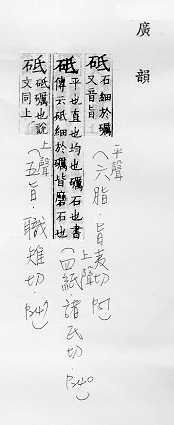 廣韻
砥 石細於礪
又音旨
平聲
(六脂·旨夷切 P51)
砥 平也直也均也礪石也書
傳云砥細於礪皆磨石也
上聲
(四紙諸氏切·P240)
砥 砥礪也說
文同上
上聲
(五旨·職雉切·P247)